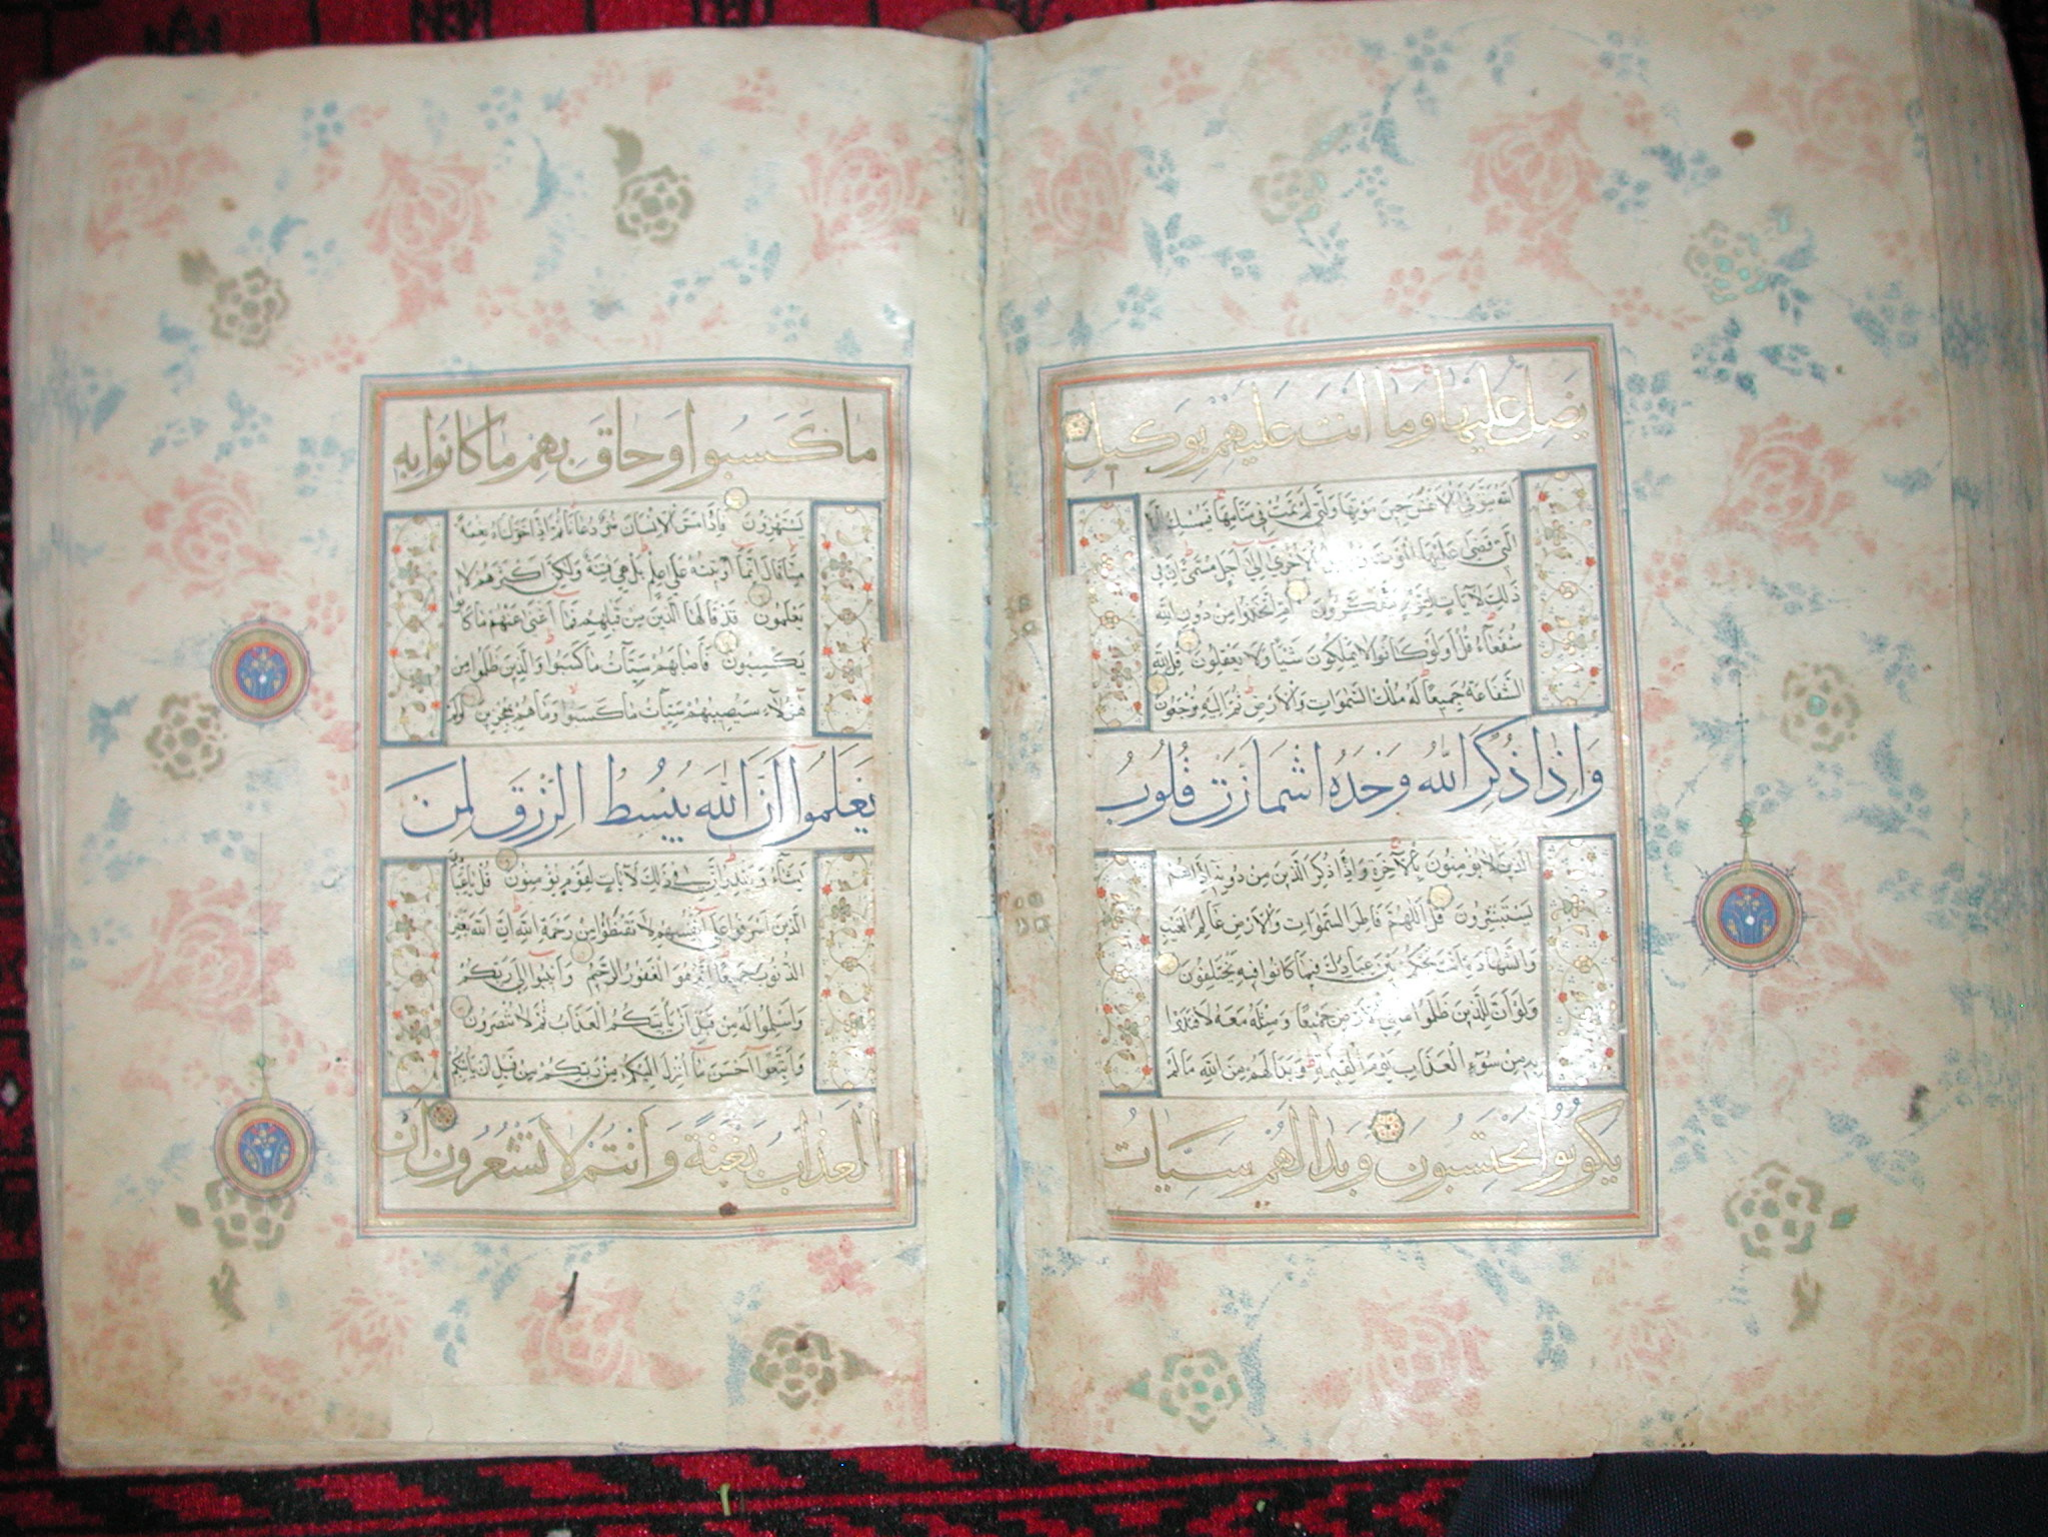 يَضِلُّ عَلَيْهَا وَمَا اَنْتَ عَلَيْهِمْ بِوَكِيلٍ
اَللّٰهُ يَتَوَفَّى الْاَنْفُسَ حِينَ مَوْتِهَا وَالَّتِي لَمْ تَمُتْ فِي مَنَامِهَا فَيُمْسِكُ
الَّتِي قَضَى عَلَيْهَا الْمَوْتَ الْاُخْرَى اِلَى اَجَلٍ مُسَمًّى اِنَّ فِي
ذٰلِكَ لَاٰيَاتٍ لِقَوْمٍ يَتَفَكَّرُونَ اَمِ اتَّخَذُوا مِنْ دُونِ اللّٰهِ
شُفَعَآءَ قُلْ اَوَلَوْ كَانُوا لَا يَمْلِكُونَ شَيْئًا وَلَا يَعْقِلُونَ قُلْ لِلّٰهِ
الشَّفَاعَةُ جَمِيعًا لَهُ مُلْكُ السَّمٰوَاتِ وَالْاَرْضِ ثُمَّ اِلَيْهِ تُرْجَعُونَ
وَاِذَا ذُكِرَ اللّٰهُ وَحْدَهُ اشْمَاَزَّتْ قُلُوبُ
الَّذِينَ لَا يُؤْمِنُونَ بِالْاٰخِرَةِ وَاِذَا ذُكِرَ الَّذِينَ مِنْ دُونِهِ اِذَا هُمْ
يَسْتَبْشِرُونَ قُلِ اللّٰهُمَّ فَاطِرَ السَّمٰوَاتِ وَالْاَرْضِ عَالِمَ الْغَيْبِ
وَالشَّهَادَةِ اَنْتَ تَحْكُمُ بَيْنَ عِبَادِكَ فِيمَا كَانُوا فِيهِ يَخْتَلِفُونَ
وَلَوْ اَنَّ لِلَّذِينَ ظَلَمُوا مَا فِي الْاَرْضِ جَمِيعًا وَمِثْلَهُ مَعَهُ لَافْتَدَوْا
بِهِ مِنْ سُوٓءِ الْعَذَابِ يَوْمَ الْقِيٰمَةِ وَبَدَا لَهُمْ مِنَ اللّٰهِ مَا لَمْ
يَكُونُوا يَحْتَسِبُونَ وَبَدَا لَهُمْ سَيِّاٰتُ
مَا كَسَبُوا وَحَاقَ بِهِمْ مَا كَانُوا بِهِ
يَسْتَهْزِؤُنَ فَاِذَا مَسَّ الْاِنْسَانَ ضُرٌّ دَعَانَا ثُمَّ اِذَا خَوَّلْنَاهُ نِعْمَةً
مِنَّا قَالَ اِنَّمَا اُوتِيتُهُ عَلَى عِلْمٍ بَلْ هِيَ فِتْنَةٌ وَلٰكِنَّ اَكْثَرَهُمْ لَا
يَعْلَمُونَ قَدْ قَالَهَا الَّذِينَ مِنْ قَبْلِهِمْ فَمَا اَغْنَى عَنْهُمْ مَا كَانُوا
يَكْسِبُونَ فَاَصَابَهُمْ سَيِّاٰتُ مَا كَسَبُوا وَالَّذِينَ ظَلَمُوا مِنْ
هٰٓؤُلَآءِ سَيُصِيبُهُمْ سَيِّاٰتُ مَا كَسَبُوا وَمَا هُمْ بِمُعْجِزِينَ اَوَلَمْ
يَعْلَمُوا اَنَّ اللّٰهَ يَبْسُطُ الرِّزْقَ لِمَنْ
يَشَآءُ وَيَقْدِرُ اِنَّ فِي ذٰلِكَ لَاٰيَاتٍ لِقَوْمٍ يُؤْمِنُونَ قُلْ يَا عِبَادِيَ
الَّذِينَ اَسْرَفُوا عَلَى اَنْفُسِهِمْ لَا تَقْنَطُوا مِنْ رَحْمَةِ اللّٰهِ اِنَّ اللّٰهَ يَغْفِرُ
الذُّنُوبَ جَمِيعًا اِنَّهُ هُوَ الْغَفُورُ الرَّحِيمُ وَاَنِيبُوا اِلَى رَبِّكُمْ
وَاَسْلِمُوا لَهُ مِنْ قَبْلِ اَنْ يَأْتِيَكُمُ الْعَذَابُ ثُمَّ لَا تُنْصَرُونَ
وَاتَّبِعُوا اَحْسَنَ مَا اُنْزِلَ اِلَيْكُمْ مِنْ رَبِّكُمْ مِنْ قَبْلِ اَنْ يَأْتِيَكُمُ
الْعَذَابُ بَغْتَةً وَاَنْتُمْ لَا تَشْعُرُونَ اَنْ